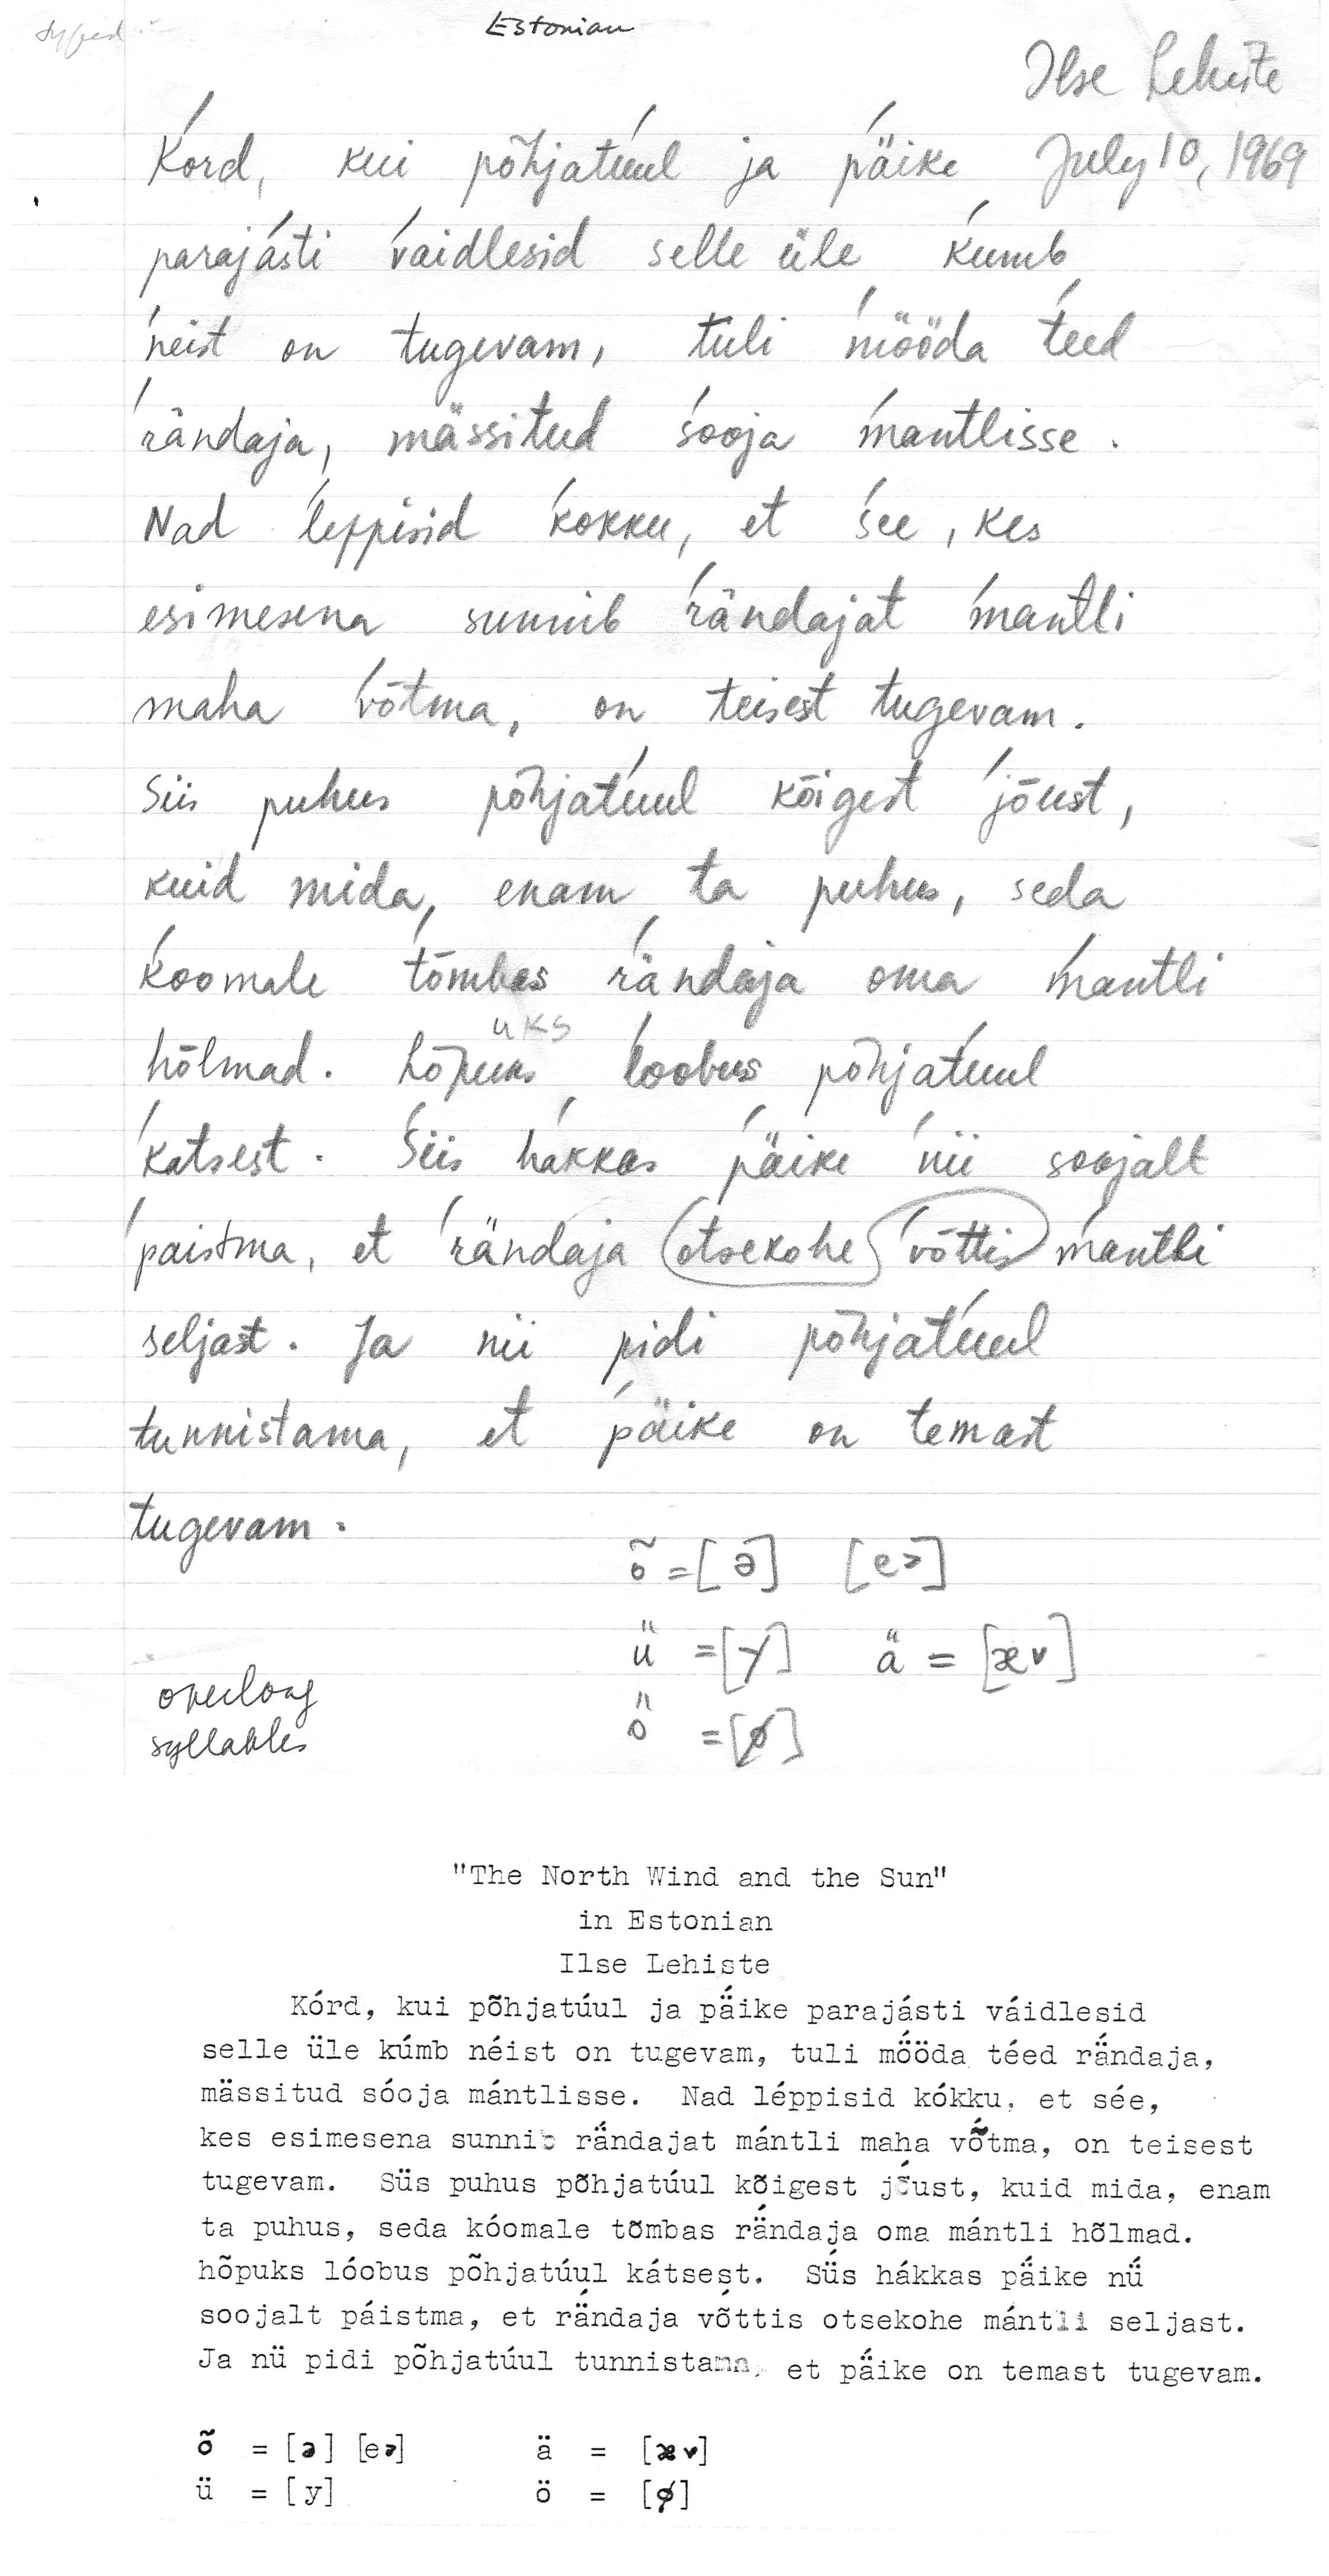 typed
Estonian
Ilse Lehiste
July 10, 1969
Kórd, kui põhjatúul ja pä́ike
parajásti váidlesid selle üle kúmb
néist on tugevam, tuli mö́öda téed
rä́ndaja, mässitud sóoja mántlisse.
Nad léppisid kókku, et sée, kes
esimesena sunnib rä́ndajat mántli
maha vṍtma, on teisest tugevam.
Siis puhus põhjatúul kõigest jṍust,
kuid mida, enam ta puhus, seda
kóomale tṍmbas rä́ndaja oma mántli
hõlmad. Lõpuks lóobus põhjatúul
uks
kátsest. Síis hákkas pä́ike níi soojalt
páistma, et rä́ndaja otsekohe vṍttis mántli
seljast. Ja nii pidi põhjatúul
tunnistama, et pä́ike on temast
tugevam.
õ = [ə] [e˃]
ü = [y] ä = [æ˅]
ö = [ø]
overlong
syllables
"The North Wind and the Sun"
in Estonian
Ilse Lehiste
Kórd, kui põhjatúul ja pä́ike parajásti váidlesid
selle üle kúmb néist on tugevam, tuli mö́öda téed rä́ndaja,
mässitud sóoja mántlisse. Nad léppisid kókku, et sée,
kes esimesena sunnib rä́ndajat mántli maha vṍtma, on teisest
tugevam. Süs puhus põhjatúul kõigest jṍust, kuid mida, enam
ta puhus, seda kóomale tõmbas rä́ndaja oma mántli hõlmad.
hõpuks lóobus põhjatúul kátsest. Sǘs hákkas pä́ike nǘ
soojalt páistma, et rä́ndaja vṍttis otsekohe mántli seljast.
Ja nü pidi põhjatúul tunnistama, et pä́ike on temast tugevam.
õ = [ə] [e˃] ä = [æ˅]
ü = [y] ö = [ø]